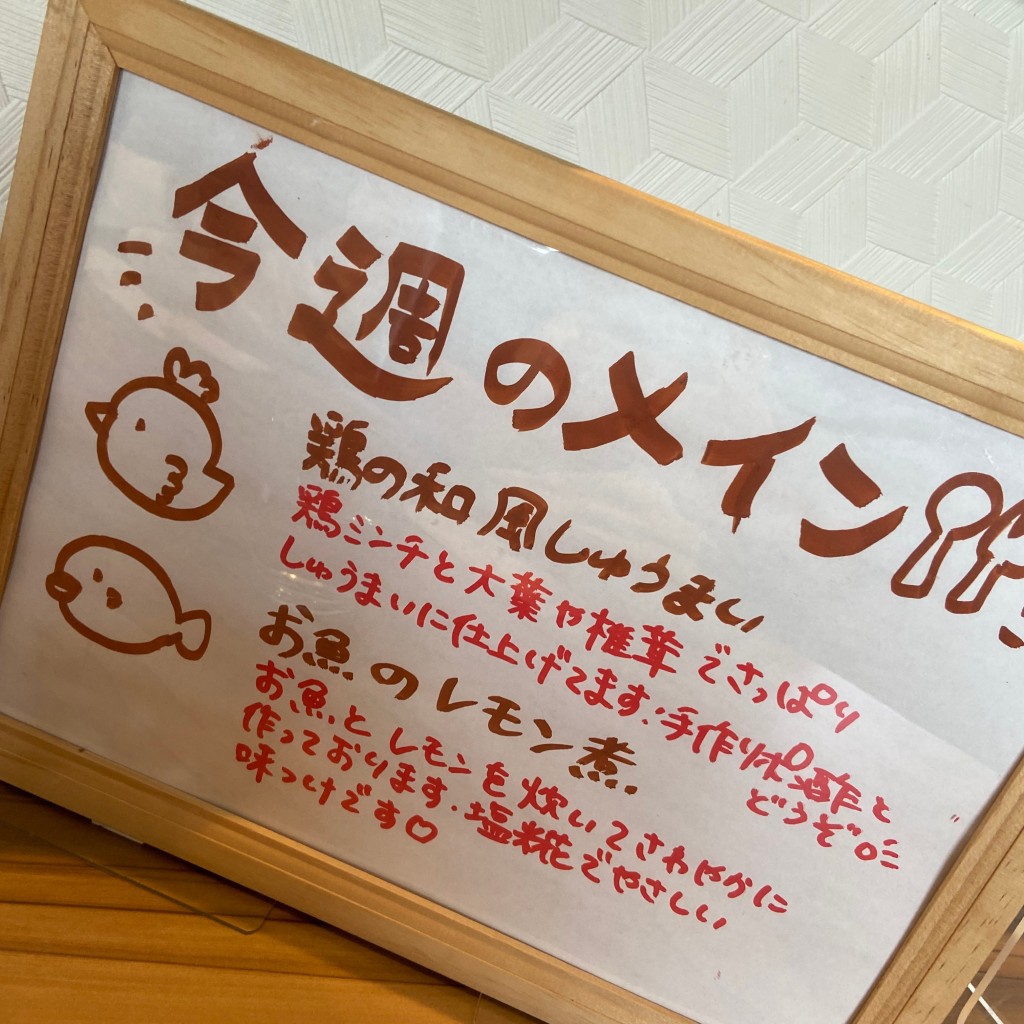 今週のメイン
鶏の和風しゅうまい
鶏ミンチと大葉や椎茸でさっぱり
しゅうまいに仕上げてます.手作りポン酢と
どうぞ。
お魚のレモン煮
お魚とレモンを炊いてさわやかに
作っております.塩糀でやさしい
味つけです♡